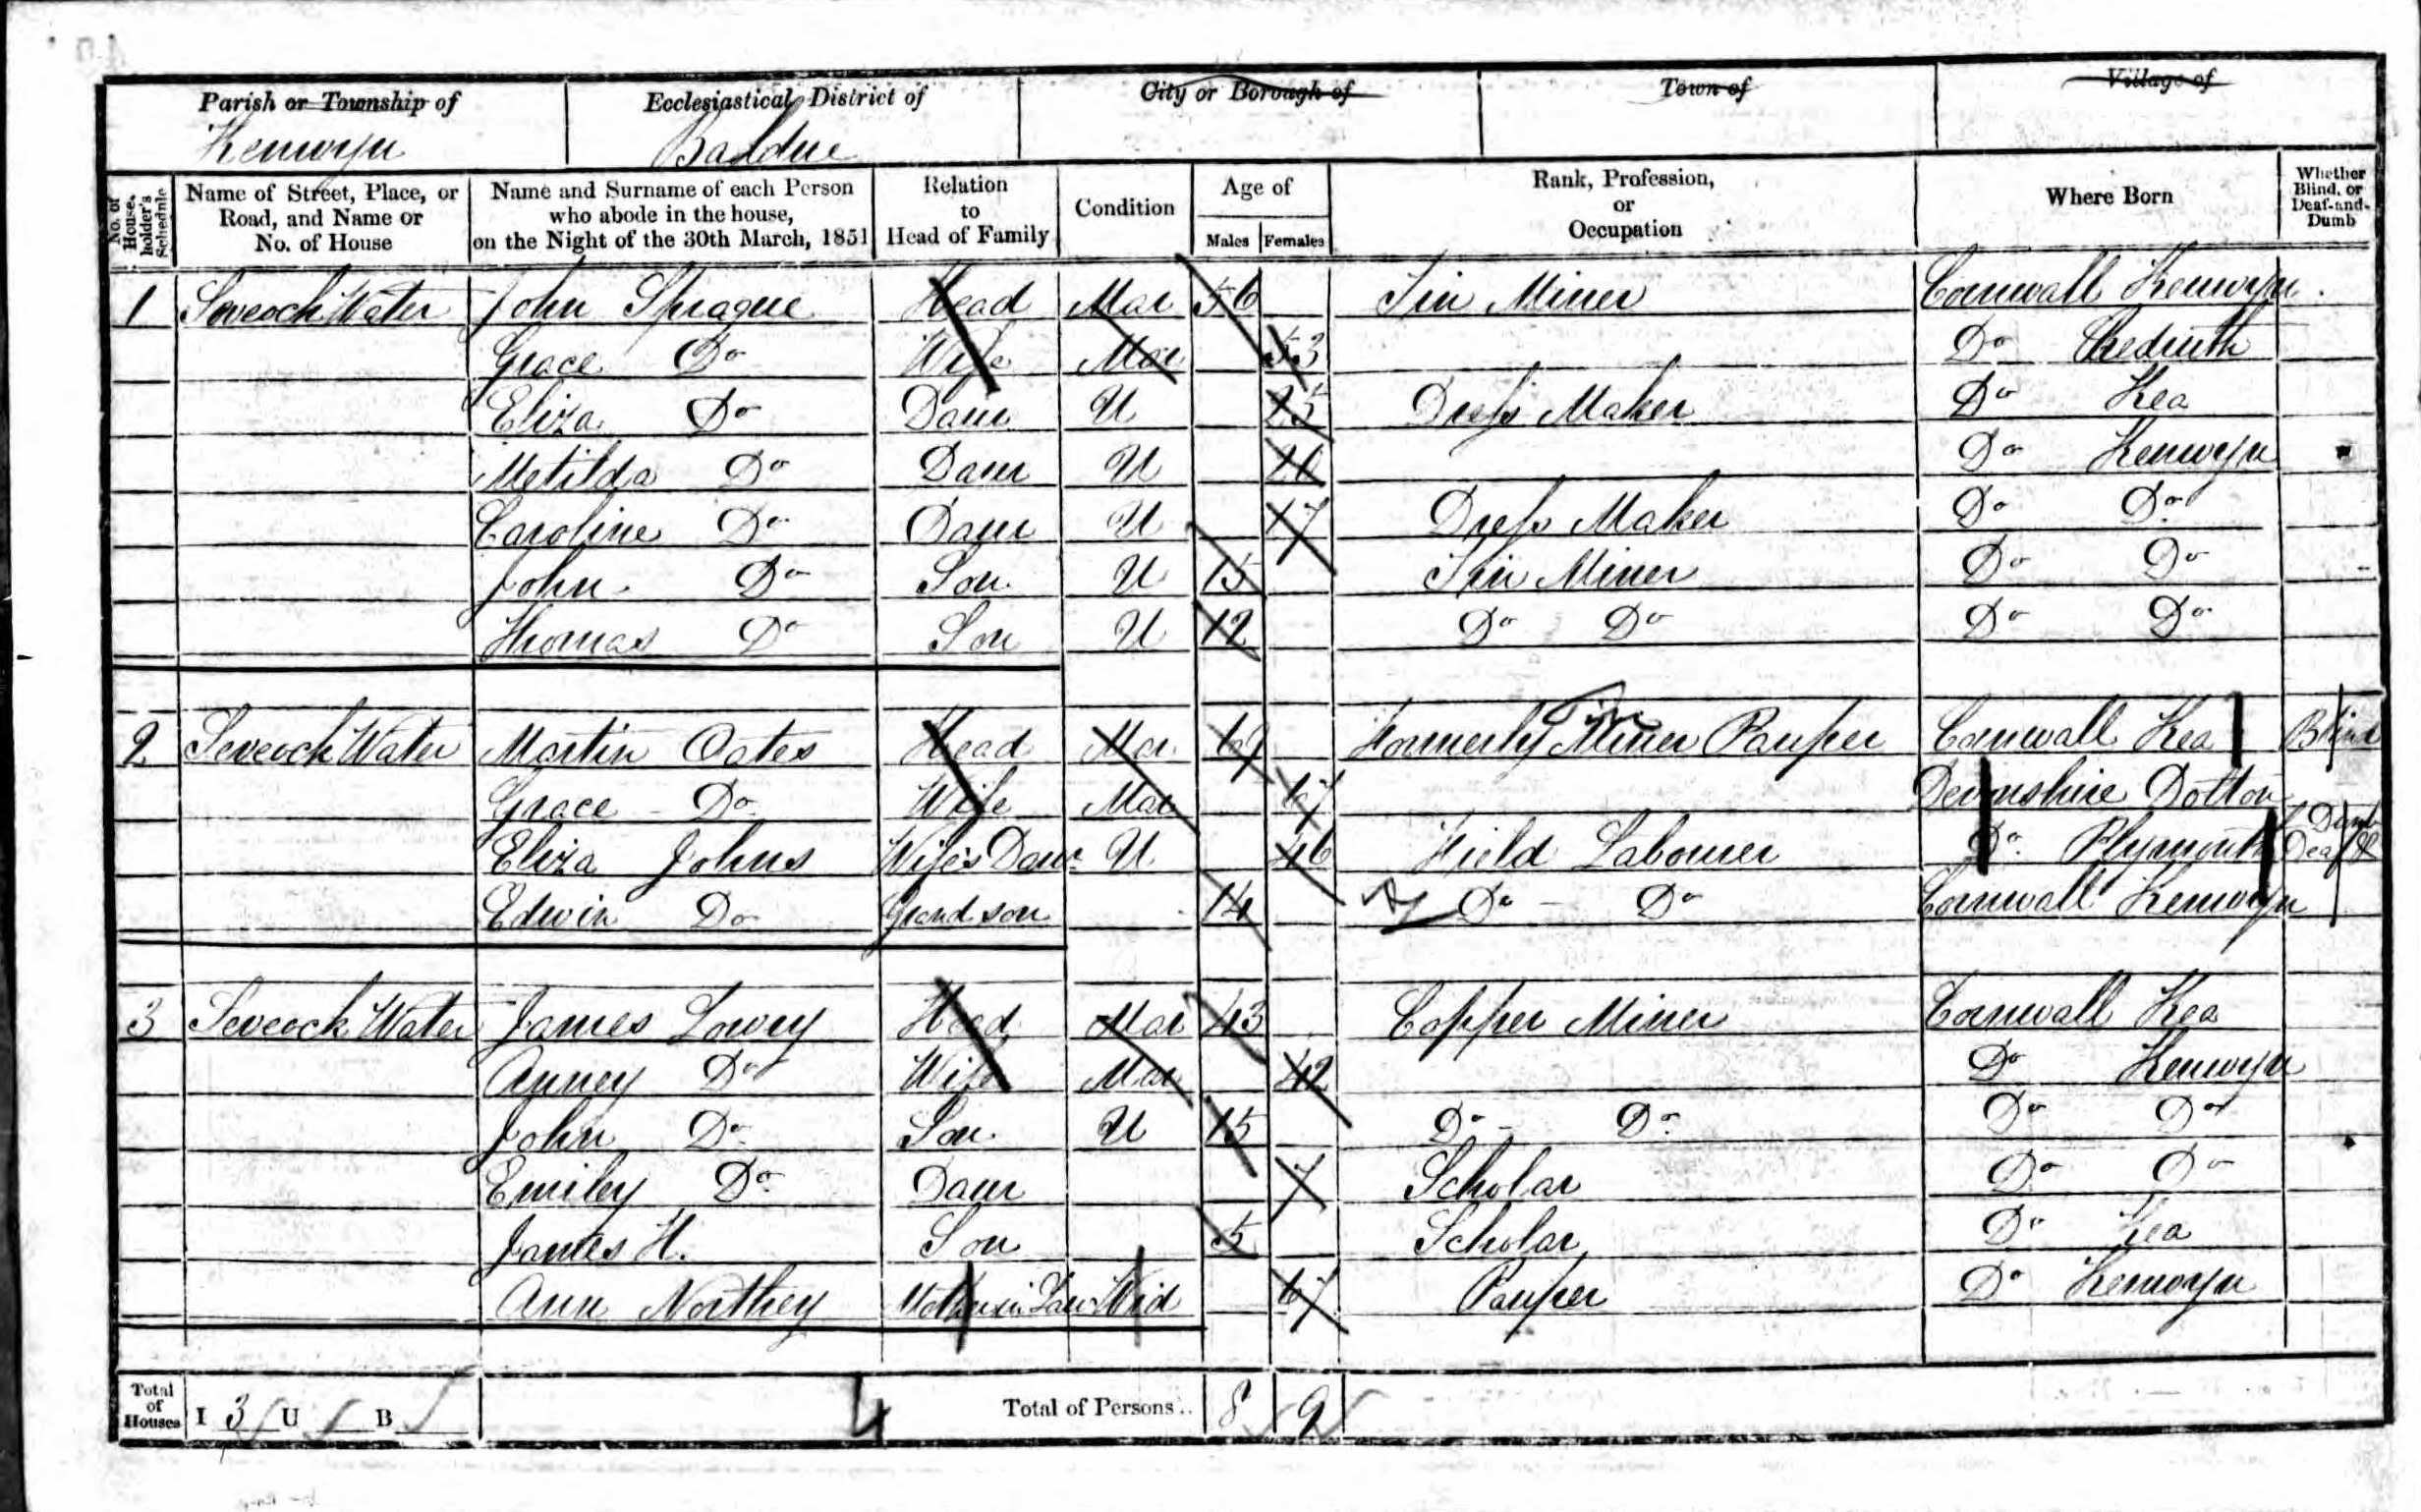 Parish or Township of Ecclesiastical District of City or Borough of Town of Village of
Kenwyn Baldue
No. of House-holder's Schedule Name of Street, Place, or Road, and Name or No. of House Name and Surname of each Person who abode in the house, on the Night of the 30th March, 1851 Relation to Head of Family Condition Age of Males Females Rank, Profession, or Occupation Where Born Whether Blind, or Deaf-and-Dumb
1 Seveock Water John Sprague Head Mar 56 Tin Miner Cornwall Kenwyn
Grace Do Wife Mar 53 Do Redruth
Eliza Do Daur U 25 Dress Maker Do Kea
Metilda Do Daur U Do Kenwyn
Caroline Do Daur U 17 Dress Maker Do Do
John Do Son U 15 Tin Miner Do Do
Thomas Do Son U 12 Do Do Do Do
2 Seveock Water Martin Oates Head Mar 69 Formerly Tin Miner Pauper Cornwall Kea Blind
Grace Do Wife Mar 67 Devonshire Dotton
Eliza Johns Wife's Daur U 46 Field Labourer Do Plymouth Deaf & Dumb
Edwin Do Grand son 14 Do Do Cornwall Kenwyn
3 Seveock Water James Lowry Head Mar 43 Copper Miner Cornwall Kea
Anney Do Wife Mar 42 Do Kenwyn
John Do Son U 15 Do Do Do Do
Emiley Do Daur 7 Scholar Do Do
James H. Son 5 Scholar Do Kea
Ann Northey Mother in Law Wid 67 Pauper Do Kenwyn
Total of Houses I 3 U B 4 Total of Persons.. 8 9